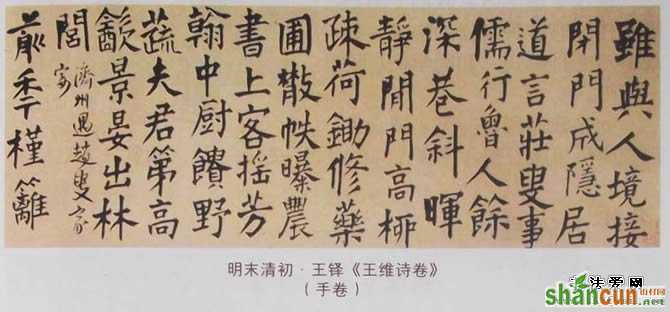 雖與人境接
閉門成隱居
道言莊叟事
儒行魯人餘
深巷斜暉
靜閒門高柳
疎荷鋤修藥
圃散帙曝農
書上客搖芳
翰中厨饋野
蔬夫君第高
㱃景晏出林
閭 濟州過趙叟家
宴
歬秊槿籬
明末清初·王铎《王维诗卷》
（手卷）
法爱网
shancun